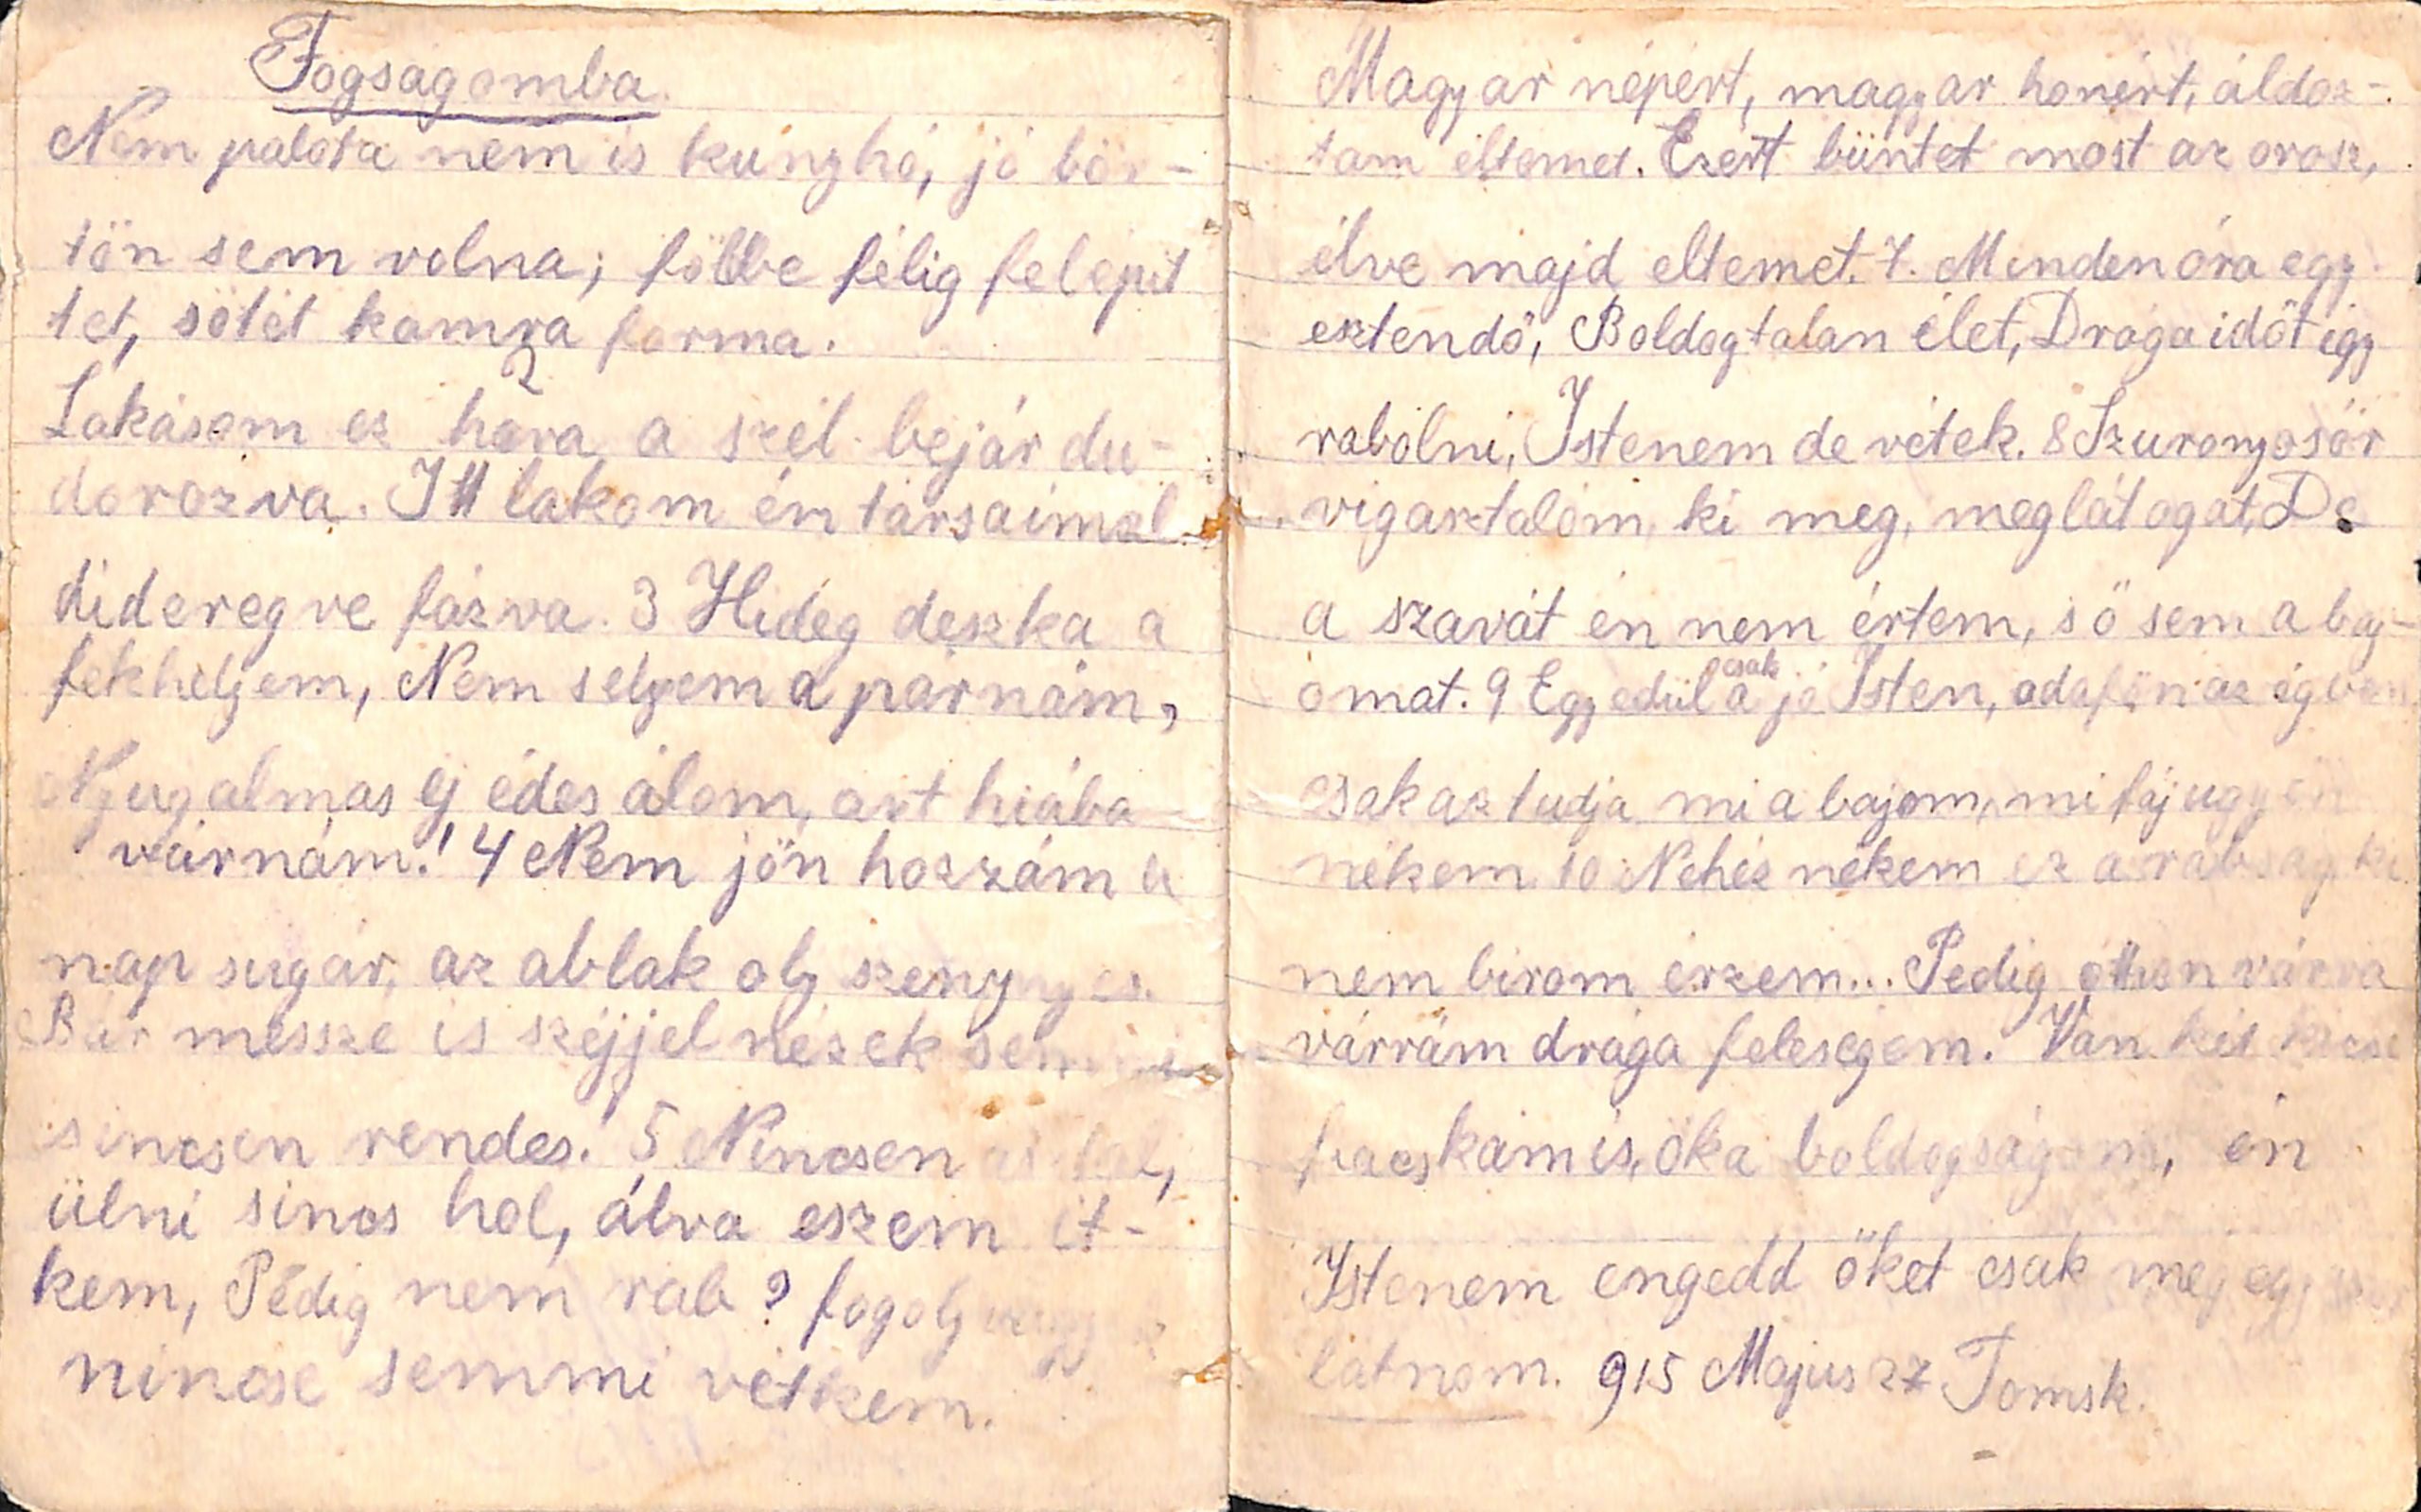 Fogságomba.
Nem palota nem is kunyhó, jó bör-
tön sem volna; földbe félig felépit
tet, sötét kamra forma.
2
Lakásom ez hova a szél bejár du-
dorozva. Itt lakom én társaimal
dideregve fázva. 3 Hideg deszka a
fekhelyem, Nem selyem a párnám,
Nyugalmas éj édes álom, azt hiába
várnám! 4 Nem jön hozzám a
nap sugár, az ablak oly szenynyes.
Bár messze is széjjel nézek semmi
sincsen rendes! 5 Nincsen asztal,
ülni sincs hol, álva eszem ét-
kem, Pedig nem rab? fogoly vagyok
nincse semmi vétkem.
Magyar népért, magyar honért, áldoz-
tam éltemet. Ezért büntet most az orosz,
élve majd eltemet. 7. Minden óra egy
esztendő, Boldogtalan élet, Drága időt igy
rabolni, Istenem de vétek. 8 Szuronyosőr
vigasztalóm, ki meg, meglátogat, De
a szavát én nem értem, s ő sem a baj-
omat. 9 Egyedül csak a jó Isten, odafön az égben
csak az tudja mi a bajom, mi fáj ugy én
nékem 10 Nehéz nékem ez a rabság ki
nem birom érzem... Pedig otthon várva
várrám drága feleségem. Van két kicsi
fracskám is, ők a boldogságom, én
Istenem engedd őket csak még egyszer
látnom. 915 Május 27 Tomsk.